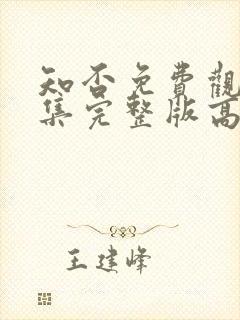 知否免費觀
集完整版高
王建峰